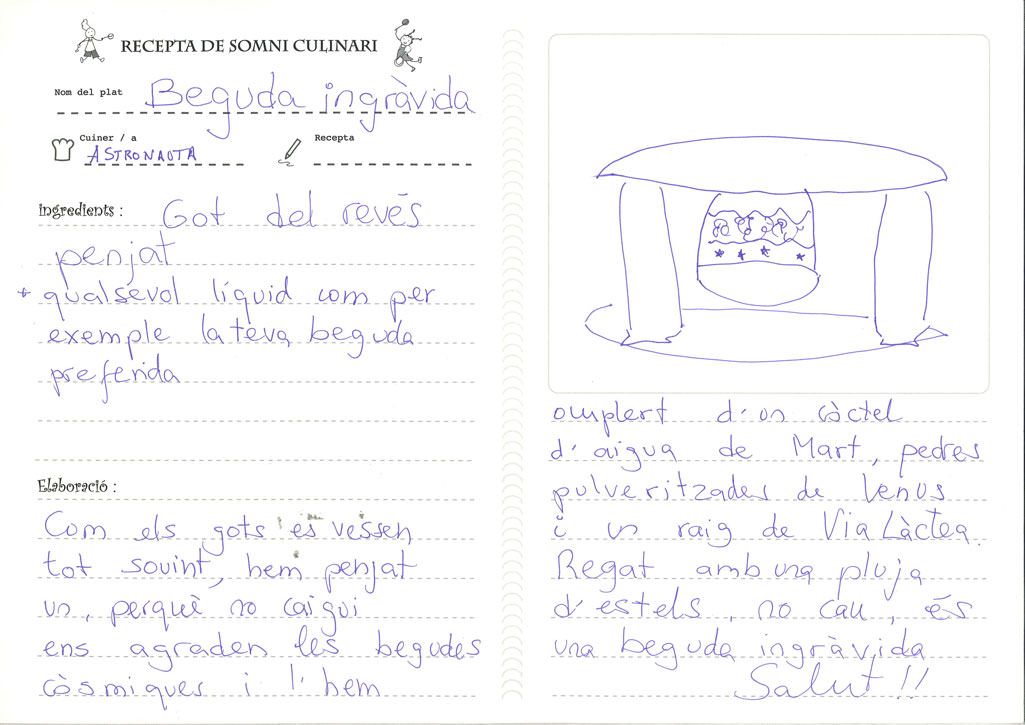 RECEPTA DE SOMNI CULINARI
Nom del plat Beguda ingràvida
Cuiner / a ASTRONAUTA
Recepta
Ingredients : Got del revés
penjat
+ qualsevol líquid com per
exemple la teva beguda
preferida
Elaboració :
Com els gots es vessen
tot sovint, hem penjat
un, perquè no caigui
ens agraden les begudes
còsmiques i l'hem
omplert d'un còctel
d'aigua de Mart, pedres
pulveritzades de Venus
i un raig de Via Làctea.
Regat amb una pluja
d'estels, no cau, és
una beguda ingràvida
Salut!!